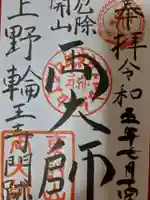 奉拝
令和五年七月
厄除
開山
両大師
上野輪王寺門跡